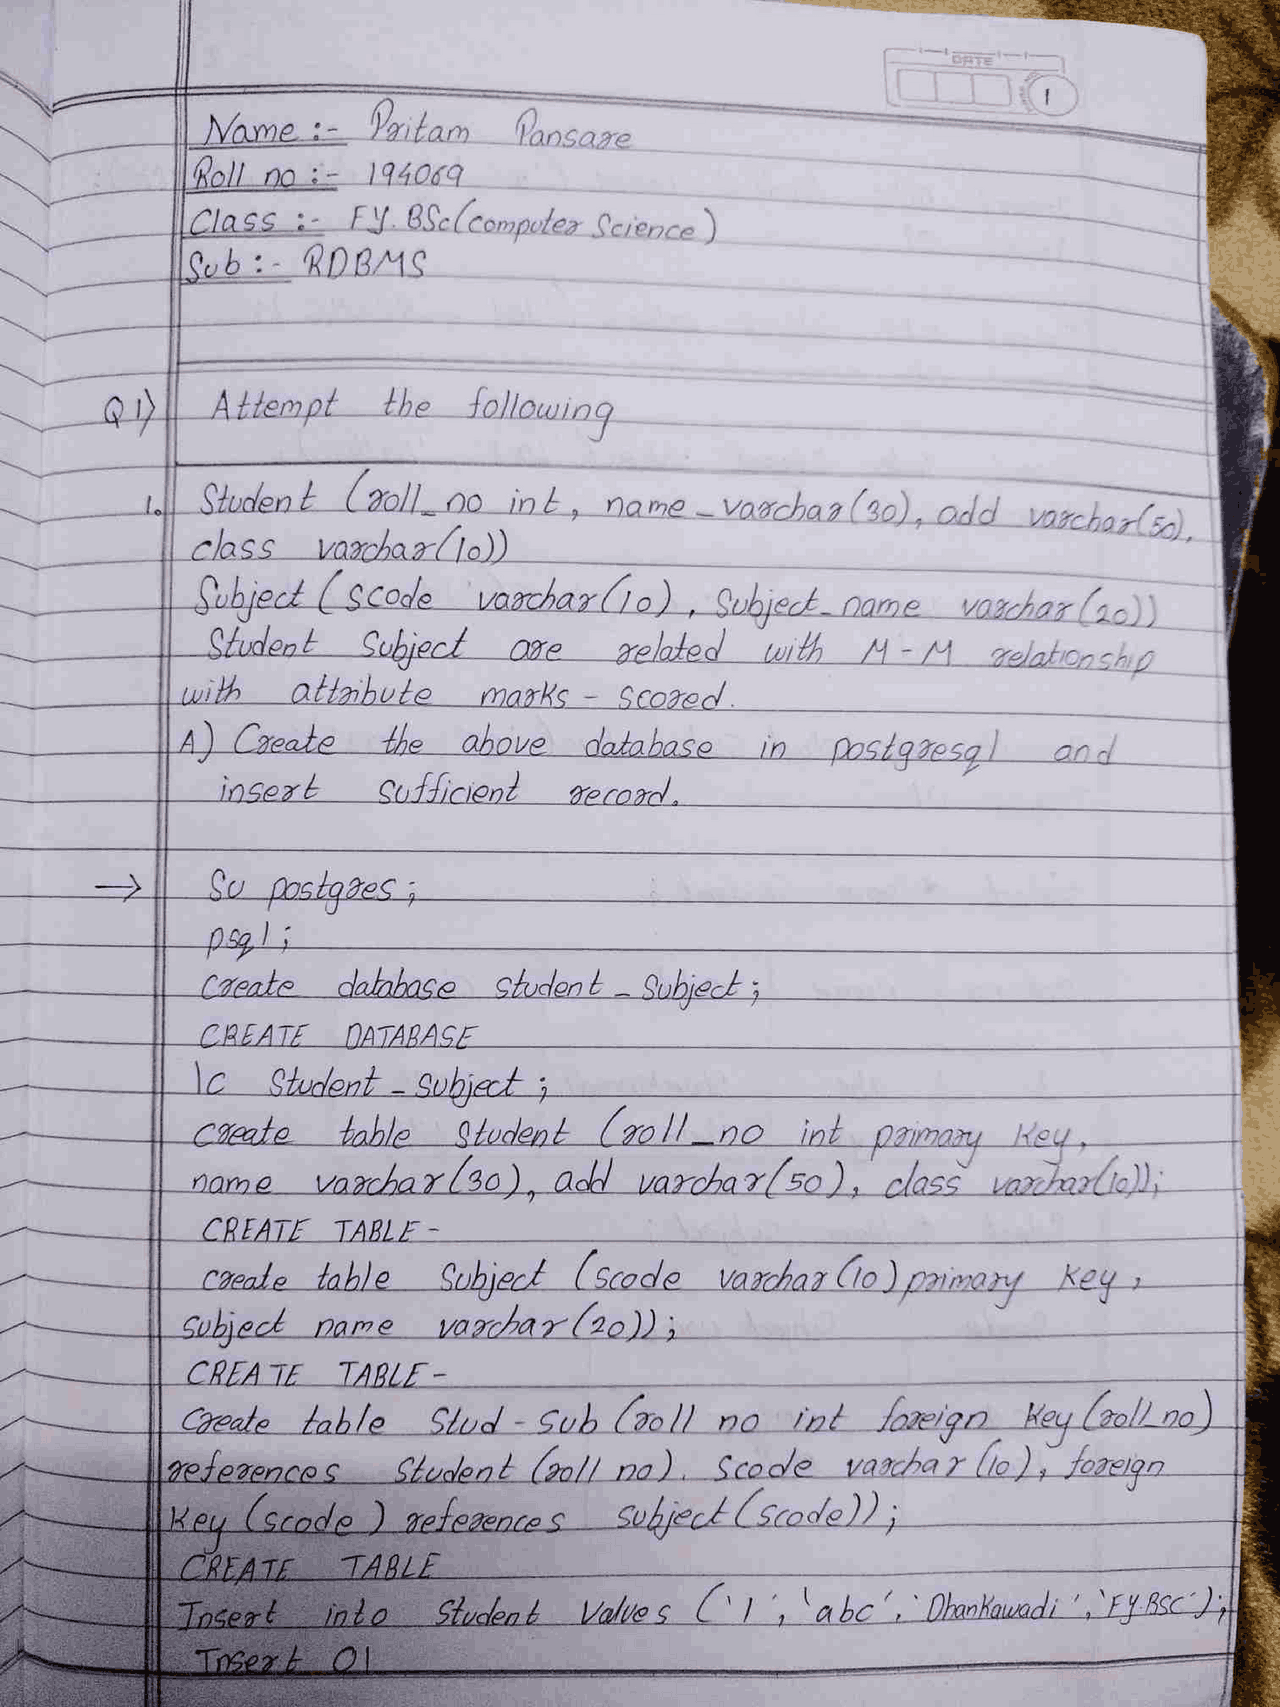 DATE
1
Name :- Pritam Pansare
Roll no :- 194069
Class :- F.Y. BSc (computer Science)
Sub :- RDBMS
Q 1) Attempt the following
1. Student (roll_no int, name_varchar(30), add varchar(50),
class varchar(10))
Subject (scode varchar(10), Subject_name varchar(20))
Student Subject are related with M-M relationship
with attribute marks - scored.
A) Create the above database in postgresql and
insert sufficient record.
→ Su postgres;
psql;
create database student_Subject;
CREATE DATABASE
\c Student_subject;
create table Student (roll_no int primary key,
name varchar(30), add varchar(50), class varchar(10));
CREATE TABLE -
create table Subject (scode varchar(10) primary key,
subject name varchar(20));
CREATE TABLE -
Create table Stud-Sub (roll no int foreign key (roll_no)
references Student (roll no). Scode varchar (10), foreign
key (scode) references subject (scode));
CREATE TABLE
Insert into Student Values ('1', 'abc', 'Dhankawadi', 'FY.BSC');
Insert 01